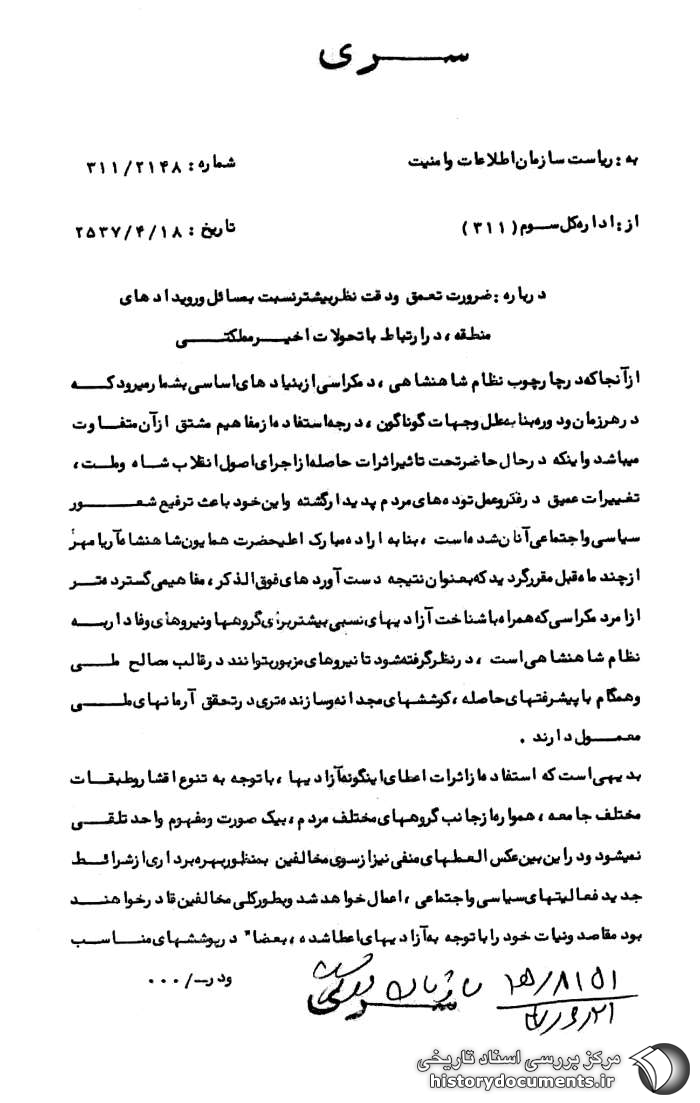 ســــری
به : ریاست سازمان اطلاعات وامنیت
شماره : ۳۱۱/۲۱۴۸
از : اداره کل سوم (۳۱۱)
تاریخ : ۲۵۳۷/۴/۱۸
درباره : ضرورت تعمق ودقت نظر بیشتر نسبت بمسائل ورویدادهای
منطقه ، در ارتباط با تحولات اخیر مملکتی
از آنجا که در چارچوب نظام شاهنشاهی ، دمکراسی از بنیادهای اساسی بشمار میرود که
در هر زمان ودوره بنا به علل وجهات گوناگون ، درجه استفاده از مفاهیم مشتق از آن متفاوت
میباشد واینکه در حال حاضر تحت تاثیر اثرات حاصله از اجرای اصول انقلاب شاه وملت ،
تغییرات عمیق در فکر وعمل توده های مردم پدیدار گشته واین خود باعث ترفیع شعور
سیاسی واجتماعی آنان شده است ، بنا به اراده مبارک اعلیحضرت همایون شاهنشاه آریامهر
از چند ماه قبل مقرر گردید که بعنوان نتیجه دست آوردهای فوق الذکر ، مفاهیمی گسترده تر
از امر دمکراسی که همراه با شناخت آزادیهای نسبی بیشتر برای گروهها ونیروهای وفادار به
نظام شاهنشاهی است ، در نظر گرفته شود تا نیروهای مزبور بتوانند در قالب مصالح ملی
وهمگام با پیشرفتهای حاصله ، کوششهای مجدانه وسازنده تری در تحقق آرمانهای ملی
معمول دارند .
بدیهی است که استفاده از اثرات اعطای اینگونه آزادیها ، با توجه به تنوع اقشار وطبقات
مختلف جامعه ، همواره از جانب گروههای مختلف مردم ، بیک صورت ومفهوم واحد تلقی
نمیشود ودر این بین عکس العملهای منفی نیز از سوی مخالفین بمنظور بهره برداری از شرائط
جدید فعالیتهای سیاسی واجتماعی ، اعمال خواهد شد وبطور کلی مخالفین قادر خواهند
بود مقاصد ونیات خود را با توجه به آزادیهای اعطا شده ، بعضا" در پوششهای مناسب
ودر ـ/۰۰۰
ســـری
مرکز بررسی اسناد تاریخی
historydocuments.ir